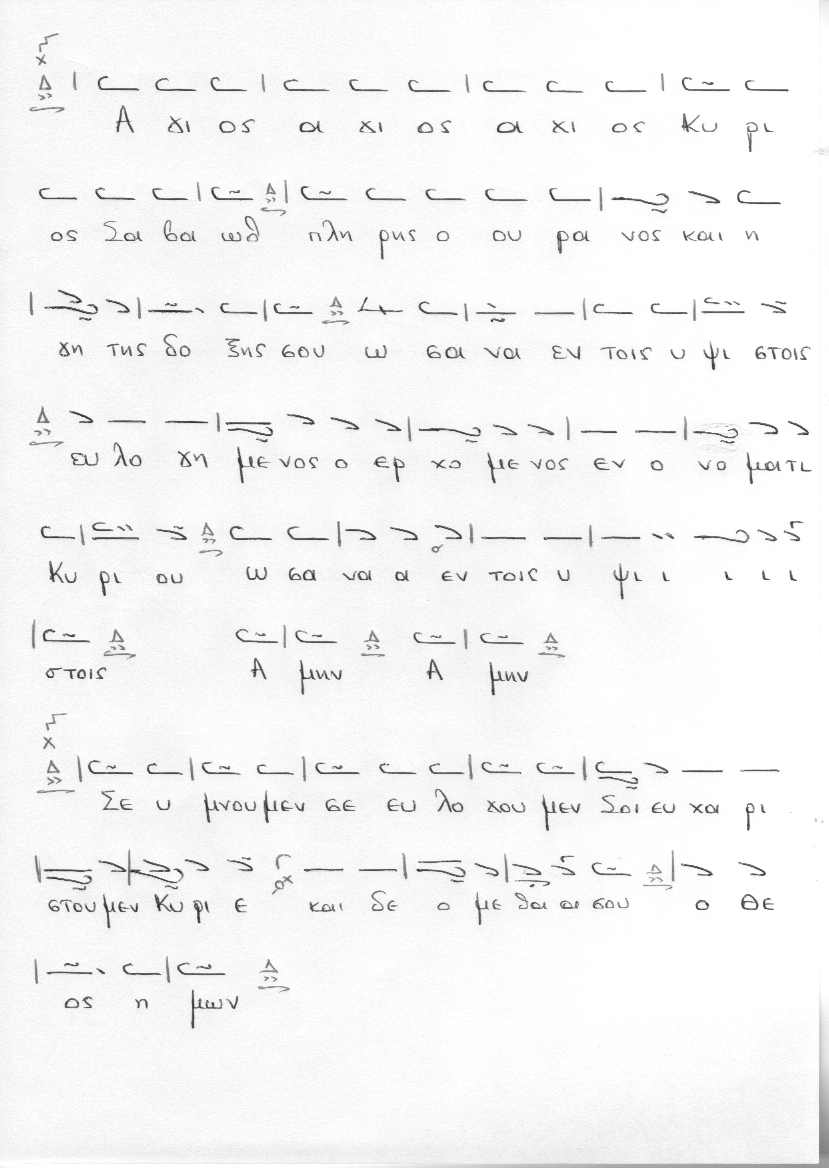 Α γι ος α γι ος α γι ος Κυ ρι
ος Σα βα ωθ πλη ρης ο ου ρα νος και η
γη της δο ξης σου ω σα να εν τοις υ ψι στοις
ευ λο γη με νος ο ερ χο με νος εν ο νο μα τι
Κυ ρι ου ω σα να α εν τοις υ ψι ι ι ι ι
στοις Α μην Α μην
Σε υ μνου μεν σε ευ λο γου μεν Σοι ευ χα ρι
στου μεν Κυ ρι ε και δε ο με θα α σου ο Θε
ος η μων